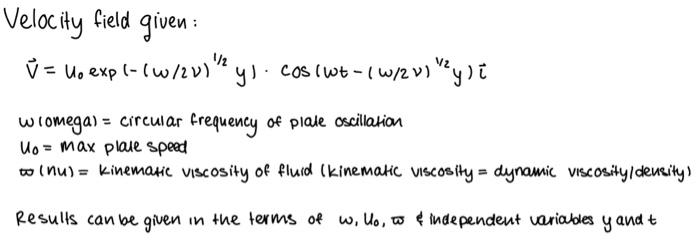 Velocity field given:
V⃗ = U₀ exp(-(ω/2ν)^1/2 y) · cos(ωt - (ω/2ν)^1/2 y) i⃗
ω(omega) = circular frequency of plate oscillation
U₀ = max plate speed
ϖ (nu) = kinematic viscosity of fluid (kinematic viscosity = dynamic viscosity/density)
Results can be given in the terms of ω, U₀, ϖ & independent variables y and t